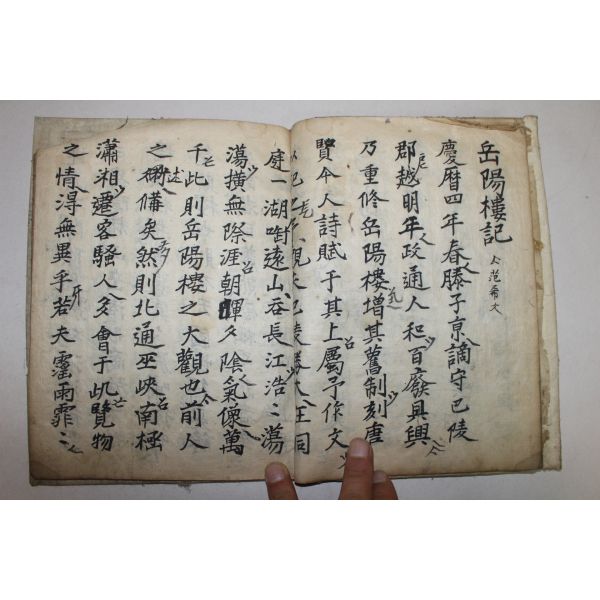 岳陽樓記 范希文
慶曆四年春滕子京謫守巴陵
郡越明年政通人和百廢具興
乃重修岳陽樓增其舊制刻唐
賢今人詩賦于其上屬予作文
以記 觀夫巴陵勝 在洞
庭一湖啣遠山吞長江浩〻蕩
蕩橫無際涯朝暉夕陰氣像萬
千此則岳陽樓之大觀也前人
之述備矣然則北通巫峽南極
瀟湘遷客騷人多會于此覽物
之情得無異乎若夫霪雨霏〻